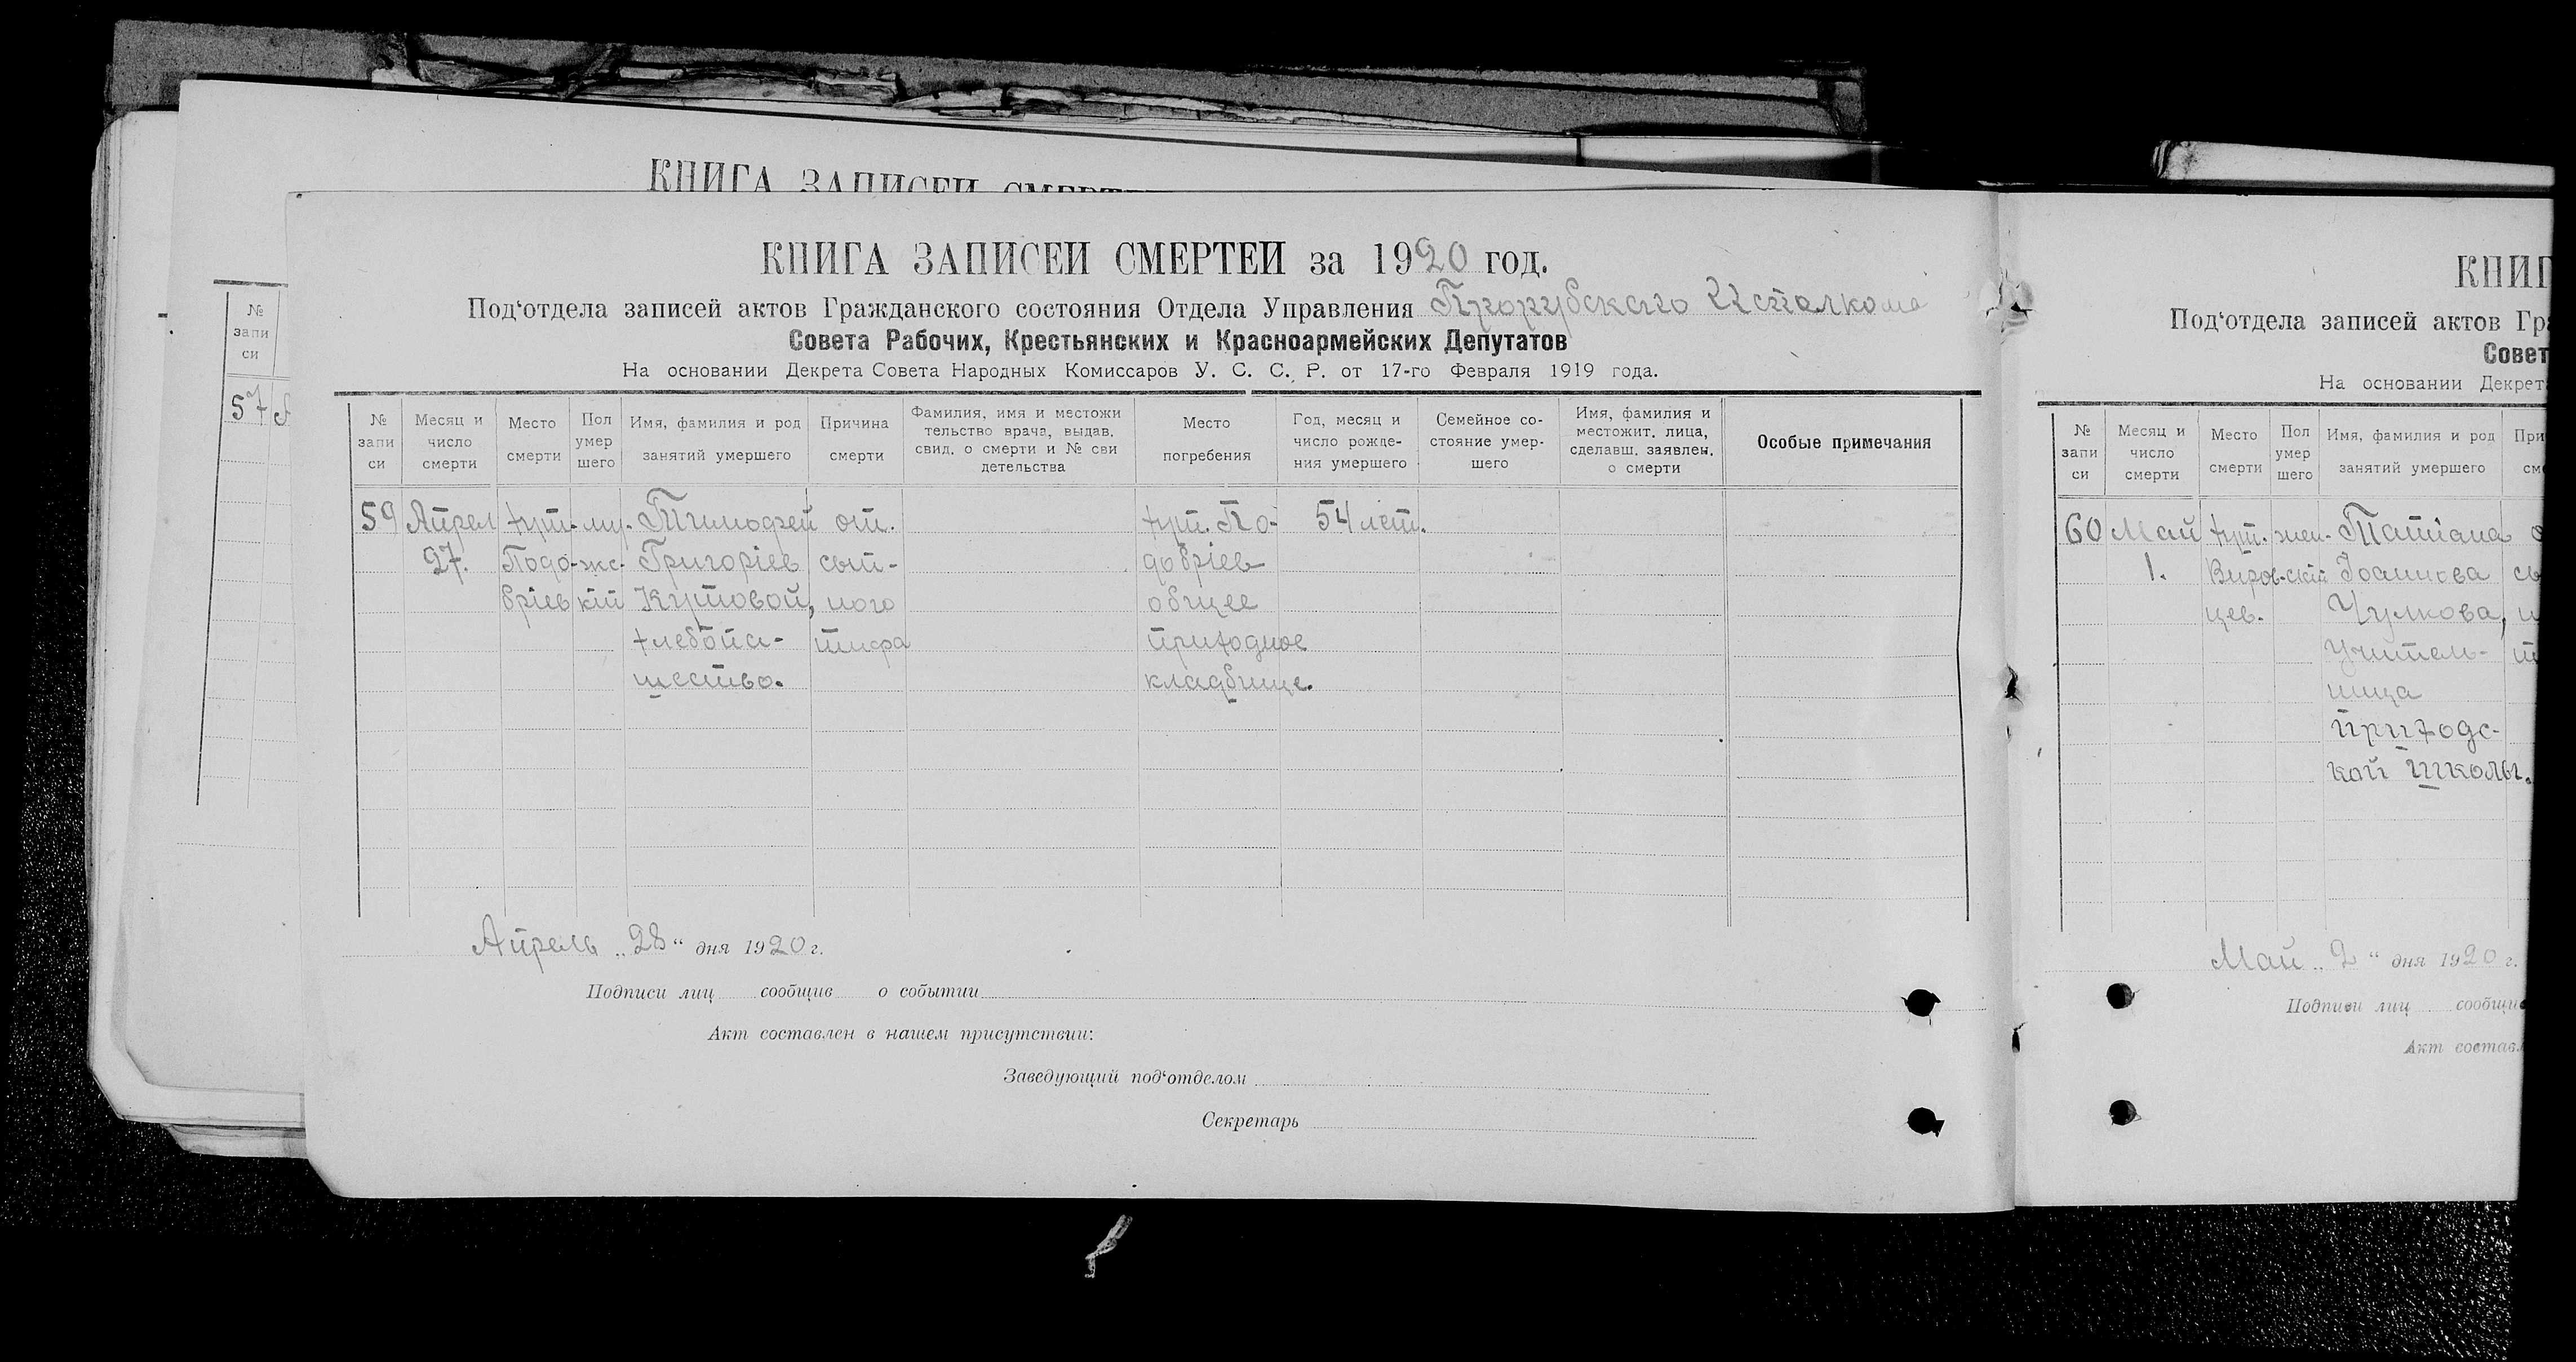 КНИГА ЗАПИСЕЙ СМЕРТЕЙ за 1920 год.
Под‘отдела записей актов Гражданского состояния Отдела Управления Прорубского Исполкома
Совета Рабочих, Крестьянских и Красноармейских Депутатов
На основании Декрета Совета Народных Комиссаров У. С. С. Р. от 17-го Февраля 1919 года.
№ запи си
Месяц и число смерти
Место смерти
Пол умер шего
Имя, фамилия и род занятий умершего
Причина смерти
Фамилия, имя и местожи тельство врача, выдав. свид. о смерти и № сви детельства
Место погребения
Год, месяц и число рожде- ния умершего
Семейное со- стояние умер- шего
Имя, фамилия и местожит. лица, сделавш. заявлен. о смерти
Особые примечания
59 Апрел хут. му- Тимофей от. хут. По- 54 лет.
27. Подо- жс- Григоріев сып- добріев
бріев кій Кутовой, ного общее
хлебопа- тифа приходное
шество. кладбище.
Апрель „28“ дня 1920 г.
Подписи лиц сообщив о событии
Акт составлен в нашем присутствии:
Заведующий под‘отделом
Секретарь
№ запи си
57
КНИГ
Под‘отдела записей актов Гр
Совет
На основании Декрет
№ запи си
Месяц и число смерти
Место смерти
Пол умер шего
Имя, фамилия и род занятий умершего
60 Май хут. жен- Татіана
1. Виров- скій Іоаннова
цев. Чулкова,
учитель-
ница
приходс-
кой школы.
Май „2“ дня 1920 г.
Подписи лиц